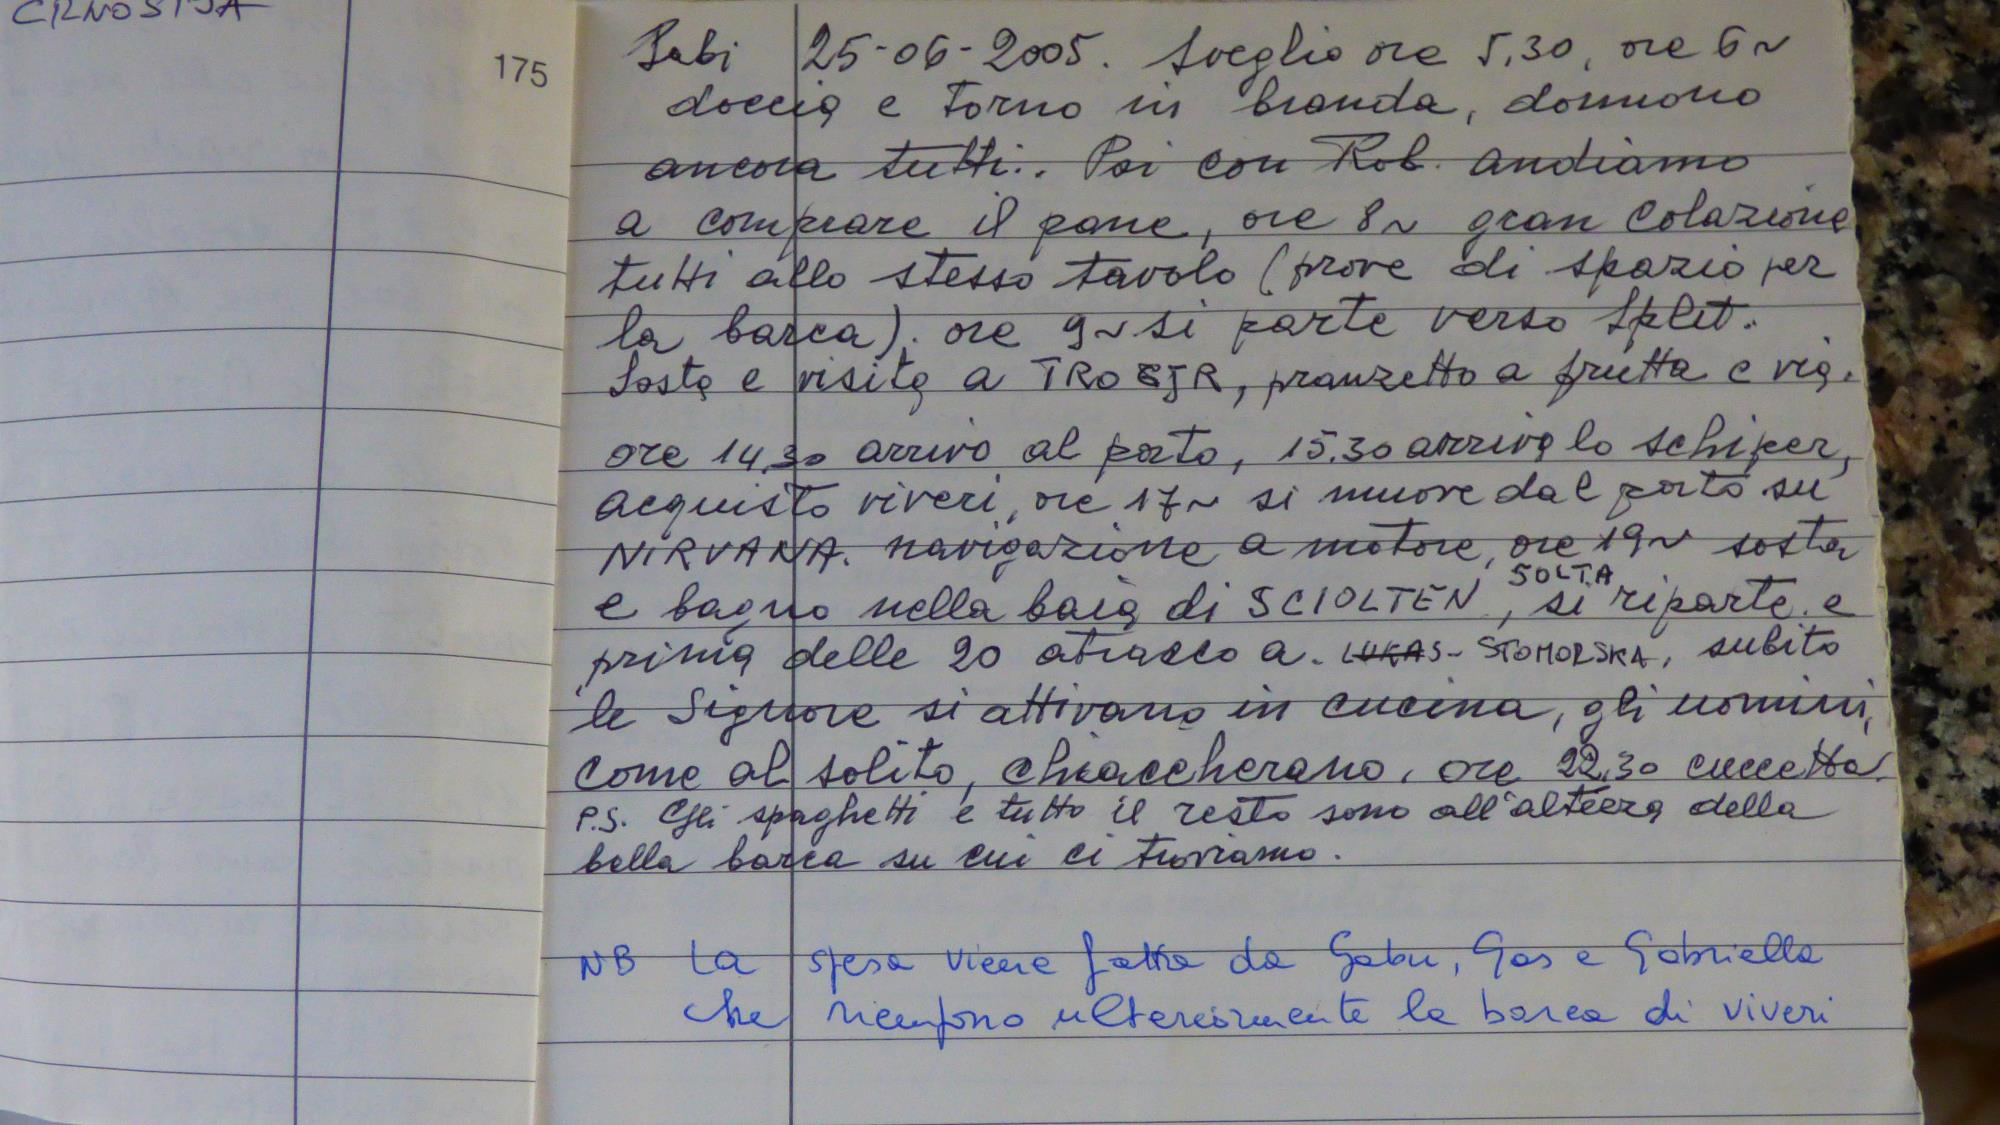 CRNOSIJA
175
Sabi 25-06-2005. Sveglio ore 5,30, ore 6~
doccia e torno in branda, dormono
ancora tutti.. Poi con Rob. andiamo
a comprare il pane, ore 8~ gran colazione
tutti allo stesso tavolo (prove di spazio per
la barca). ore 9~ si parte verso Split.
Sosta e visita a TROGIR, pranzetto a frutta e via.
ore 14,30 arrivo al porto, 15.30 arriva lo schiper,
acquisto viveri, ore 17~ si muove dal porto su
NIRVANA. navigazione a motore, ore 19~ sosta
SOLTA
e bagno nella baia di SCIOLTEN, si riparte e
prima delle 20 atracco a. LUKAS- STOMORSKA, subito
le Signore si attivano in cucina, gli uomini,
come al solito, chiaccherano. ore 22,30 cuccetta.
P.S. Gli spaghetti e tutto il resto sono all'altezza della
bella barca su cui ci troviamo.
NB La spesa viene fatta da Gabu, Gas e Gabriella
che riempono ulteriormente la barca di viveri